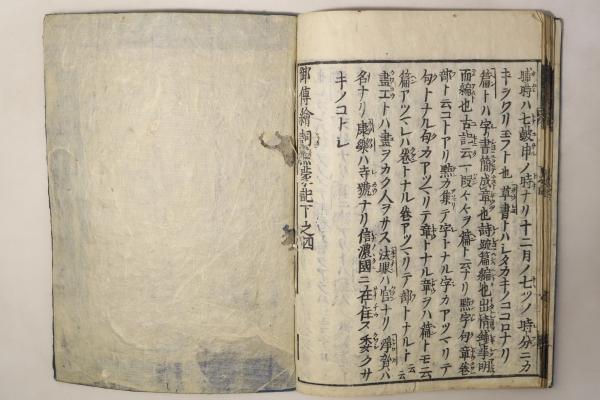 晡時ハ七皷申ノ時ナリ十二月ノ七ツノ時分ニカ
キヲクリ玉フト也草書トハシタカキノココロナリ
篇トハ字書簡成章也詩疏篇編也出情鋪事明
而編也古記云一段々々ヲ篇ト云ナリ點字句章卷
部ト云コトアリ點カ集テ字トナル字カアツマリテ
句トナル句カアツマリテ章トナル章ヲハ篇トモ云
篇アツマレハ卷トナル卷アツマリテ部トナルト云云
畫エトハ畫ヲカク人ヲサス法眼ハ官ナリ淨賀ハ
名ナリ康樂ハ寺號ナリ信濃國ニ在住ス委クサ
キノコトシ
傳繪詞 記下之四